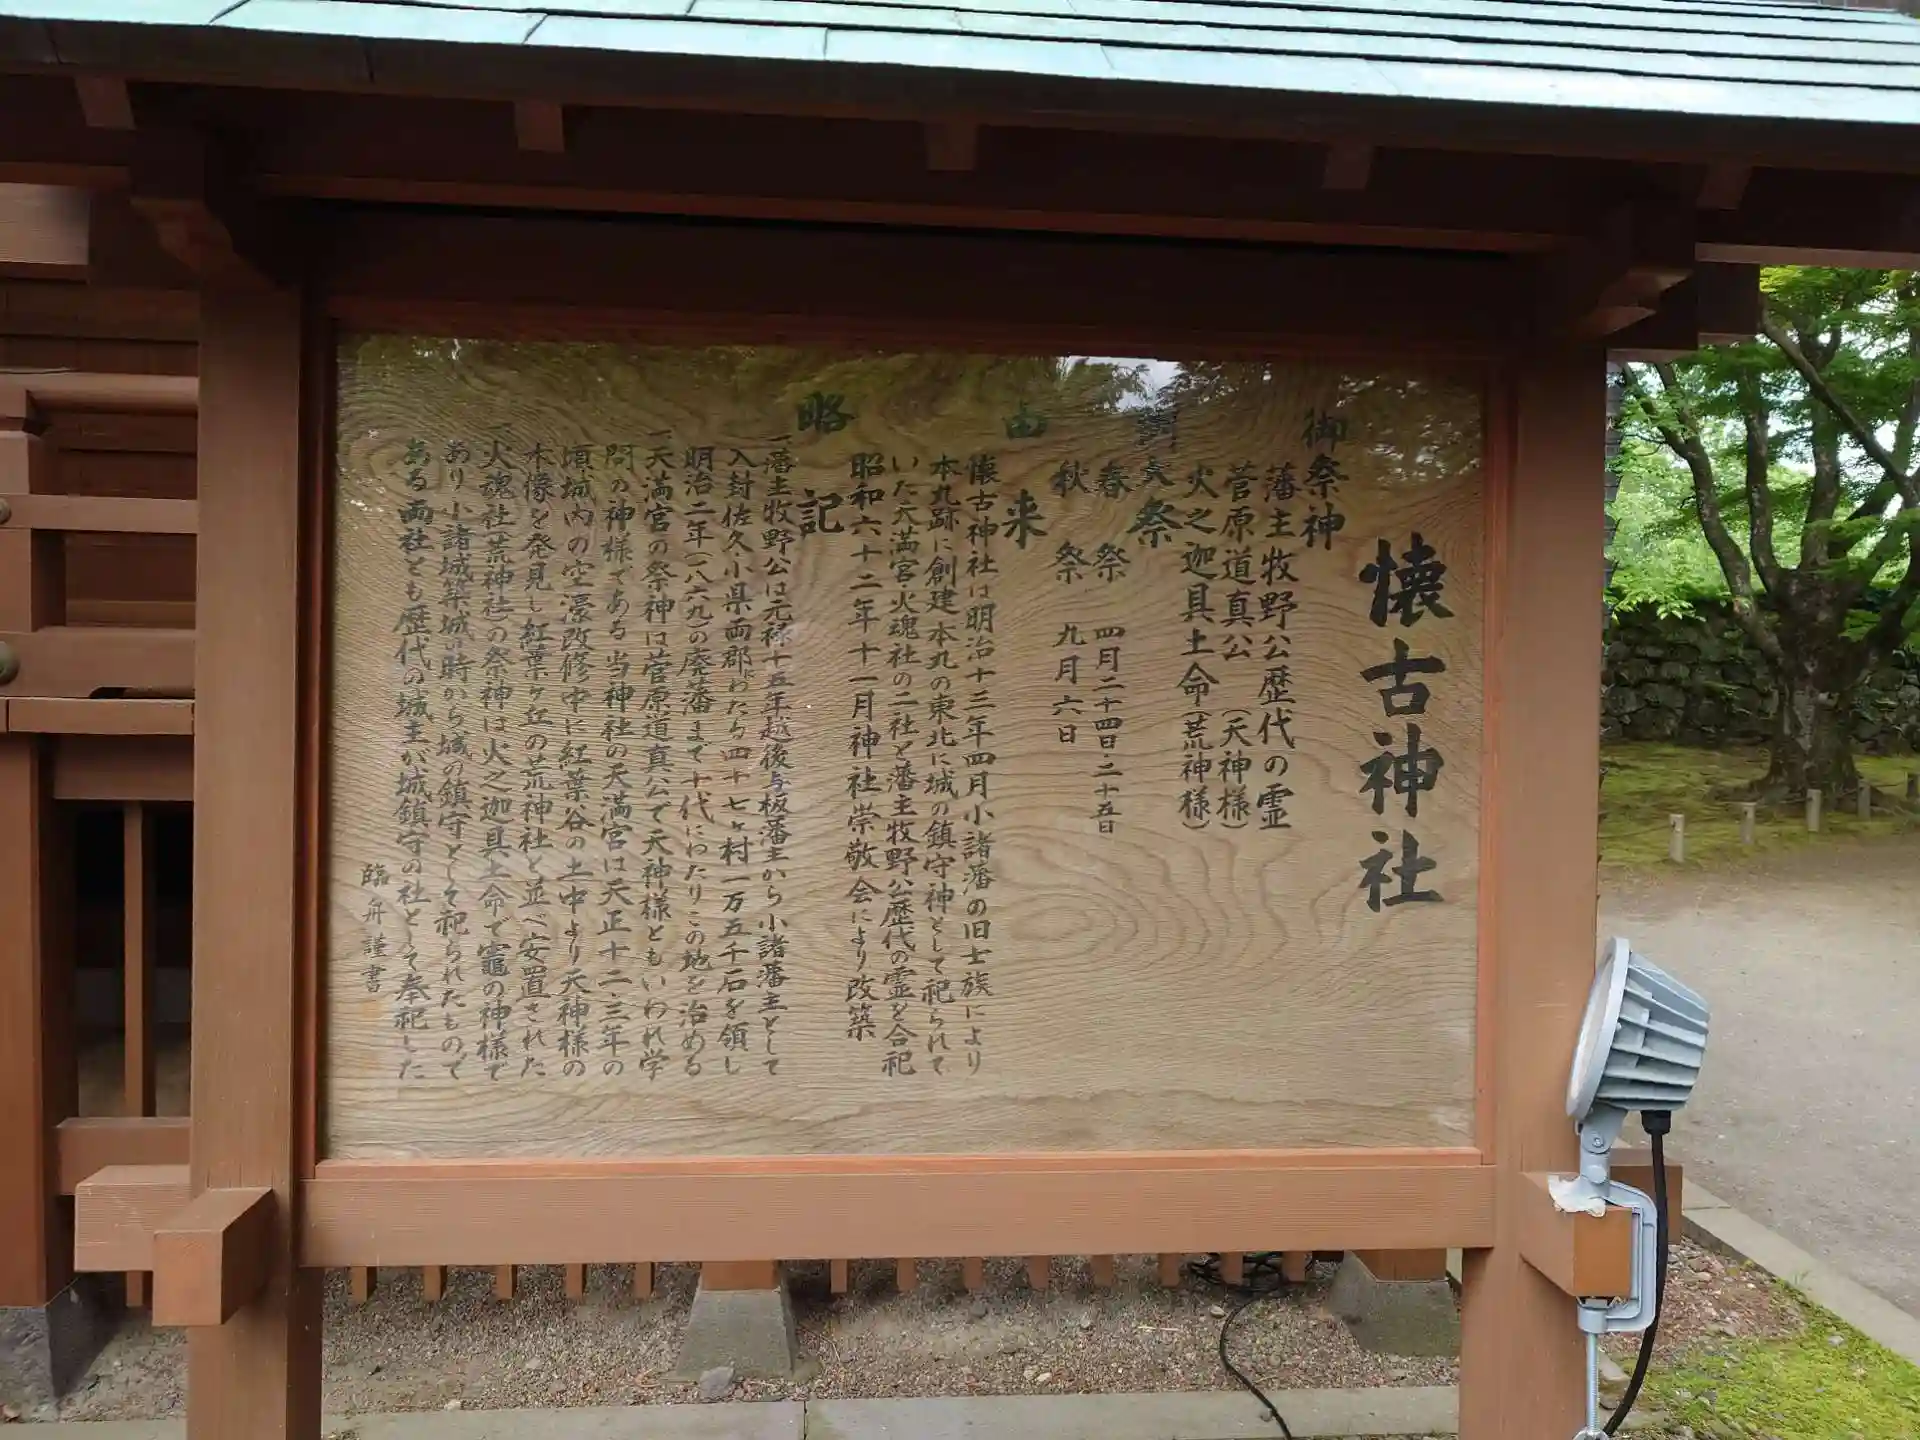 懐古神社
御祭神
藩主牧野公歴代の霊
菅原道真公(天神様)
火之迦具土命(荒神様)
大祭
春祭 四月二十四日・二十五日
秋祭 九月六日
由来
懐古神社は明治十三年四月小諸藩の旧士族により
本丸跡に創建本丸の東北に城の鎮守神として祀られて
いた天満宮・火魂社の二社と藩主牧野公歴代の霊を合祀
昭和六十二年十一月神社崇敬会により改築
略記
一藩主牧野公は元禄十五年越後与板藩主から小諸藩主として
入封佐久小県両郡にわたる四十七ヶ村一万五千石を領し
明治二年(一八六九)の廃藩まで十代にわたりこの地を治める
一天満宮の祭神は菅原道真公で天神様ともいわれ学
問の神様である当神社の天満宮は天正十二・三年の
頃城内の空濠改修中に紅葉谷の土中より天神様の
木像を発見し紅葉ヶ丘の荒神社と並べ安置された
一火魂社(荒神社)の祭神は火之迦具土命で竈の神様で
あり小諸城築城の時から城の鎮守として祀られたもので
ある両社とも歴代の城主が城鎮守の社として奉祀した
臨舟謹書